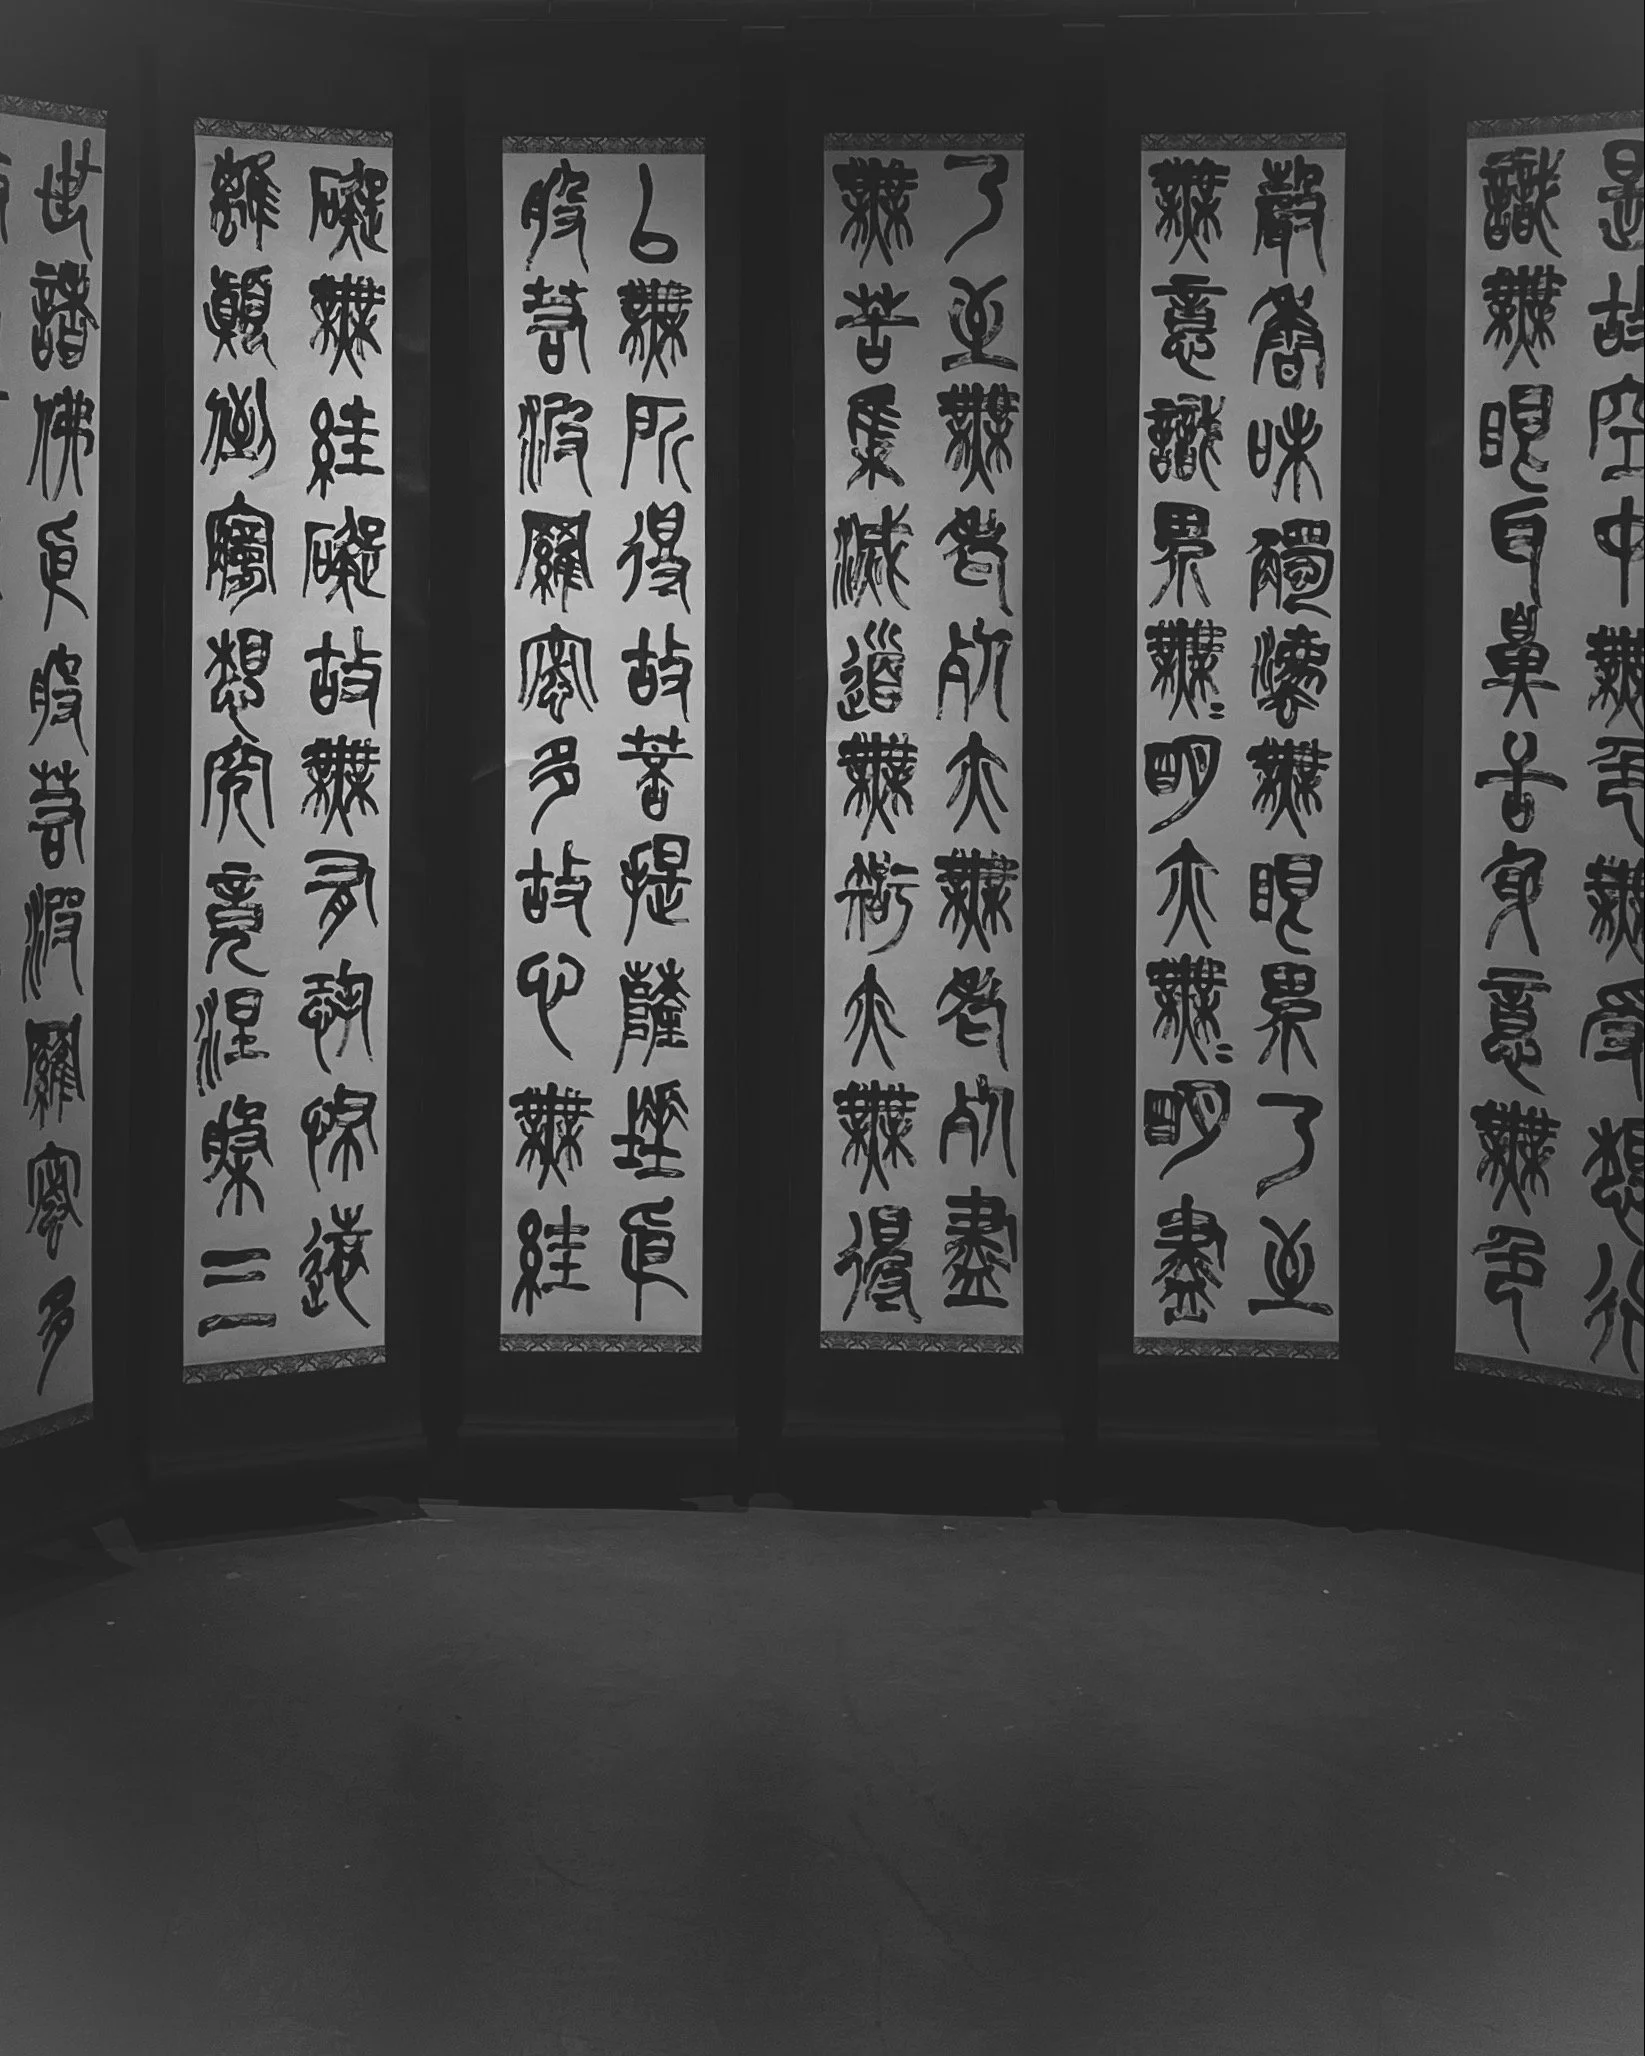 是故空中無色無受想行
識無眼耳鼻舌身意無色
聲香味觸法無眼界乃至
無意識界無〻明亦無〻明盡
乃至無老死亦無老死盡
無苦集滅道無智亦無得
以無所得故菩提薩埵依
般若波羅蜜多故心無絓
礙無絓礙故無有恐怖遠
離顛倒夢想究竟涅槃三
世諸佛依般若波羅蜜多